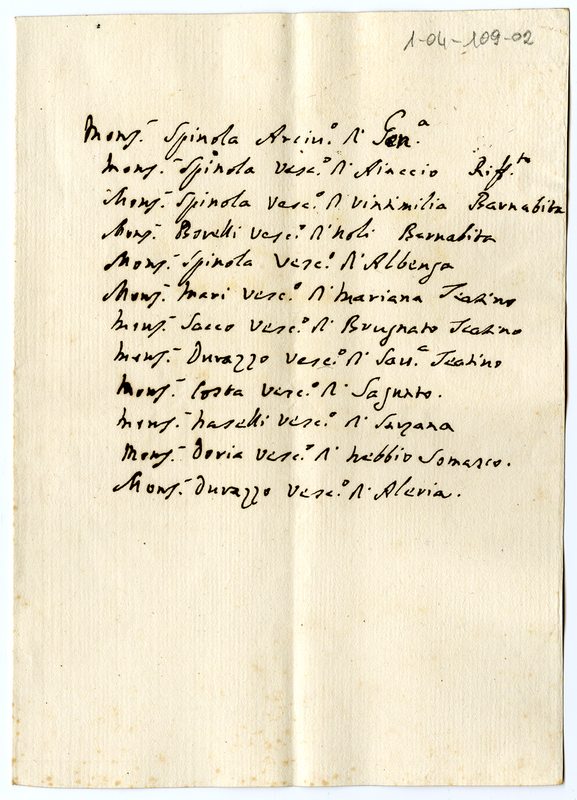 1-04-109-02
Mons.r Spinola Arciv.o di Gen.a
Mons.r Spinola Vesc.o di Aiaccio Riff.to
Mons.r Spinola Vesc.o di Vintimilia Barnabita
Mons.r Borelli Vesc.o di Noli Barnabita
Mons.r Spinola Vesc.o di Albenga
Mons.r Mari Vesc.o di Mariana Teatino
Mons.r Sacco Vesc.o di Brugnato Teatino
Mons.r Durazzo Vesc.o di Sav.a Teatino
Mons.r Costa Vesc.o di Sagunto.
Mons.r Naselli Vesc.o di Sarzana
Mons.r Doria Vesc.o di Nebbio Somasco.
Mons.r Durazzo Vesc.o di Aleria.